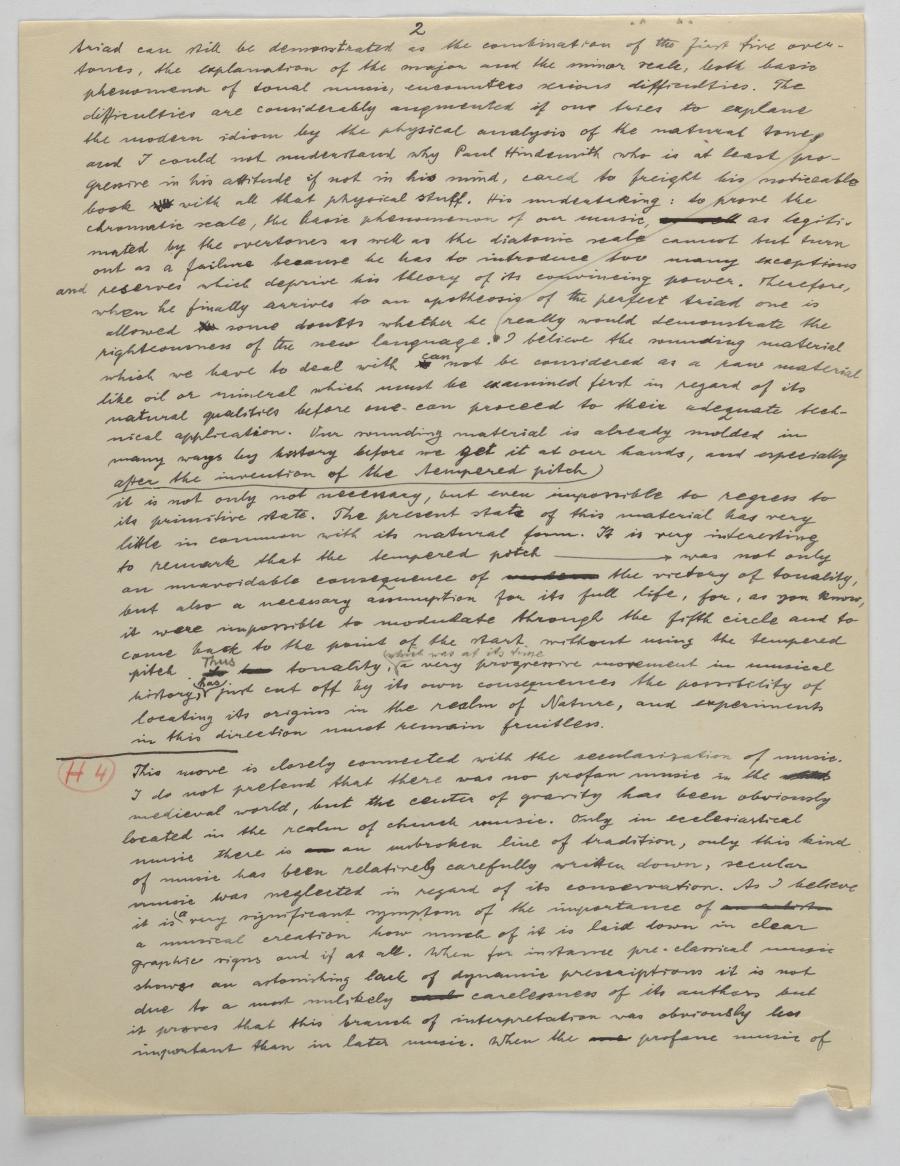 2
triad can still be demonstrated as the combination of the first five over-
tones, the explanation of the major and the minor scale, both basic
phenomena of tonal music, encounters serious difficulties. The
difficulties are considerably augmented if one tries to explane
the modern idiom by the physical analysis of the natural tone,
and I could not understand why Paul Hindemith who is at least pro-
gressive in his attitude if not in his mind, cared to freight his noticeable
book with all that physical stuff. His undertaking: to prove the
chromatic scale, the basic phenomenon of our music, as legiti-
mated by the overtones as well as the diatonic scale cannot but turn
out as a failure because he has to introduce too many exceptions
and reserves which deprive his theory of its convincing power. Therefore,
when he finally arrives to an apotheosis of the perfect triad one is
allowed some doubts whether he really would demonstrate the
righteousness of the new language. I believe the sounding material
which we have to deal with can not be considered as a raw material
like oil or mineral which must be examined first in regard of its
natural qualities before one can proceed to their adequate tech-
nical application. Our sounding material is already molded in
many ways by history before we get it at our hands, and especially
after the invention of the tempered pitch
it is not only not necessary, but even impossible to regress to
its primitive state. The present state of this material has very
little in common with its natural form. It is very interesting
to remark that the tempered pitch was not only
an unavoidable consequence of the victory of tonality,
but also a necessary assumption for its full life, for, as you know,
it were impossible to modulate through the fifth circle and to
come back to the point of the start without using the tempered
pitch Thus tonality, which was at its time a very progressive movement in musical
history, has just cut off by its own consequences the possibility of
locating its origins in the realm of Nature, and experiments
in this direction must remain fruitless.
H 4
This move is closely connected with the secularization of music.
I do not pretend that there was no profan music in the
medieval world, but the center of gravity has been obviously
located in the realm of church music. Only in ecclesiastical
music there is an unbroken line of tradition, only this kind
of music has been relatively carefully written down, secular
music was neglected in regard of its conservation. As I believe
it is a very significant symptom of the importance of
a musical creation how much of it is laid down in clear
graphic signs and if at all. When for instance pre-classical music
shows an astonishing lack of dynamic prescriptions it is not
due to a most unlikely carelessness of its authors but
it proves that this branch of interpretation was obviously less
important than in later music. When the profane music of